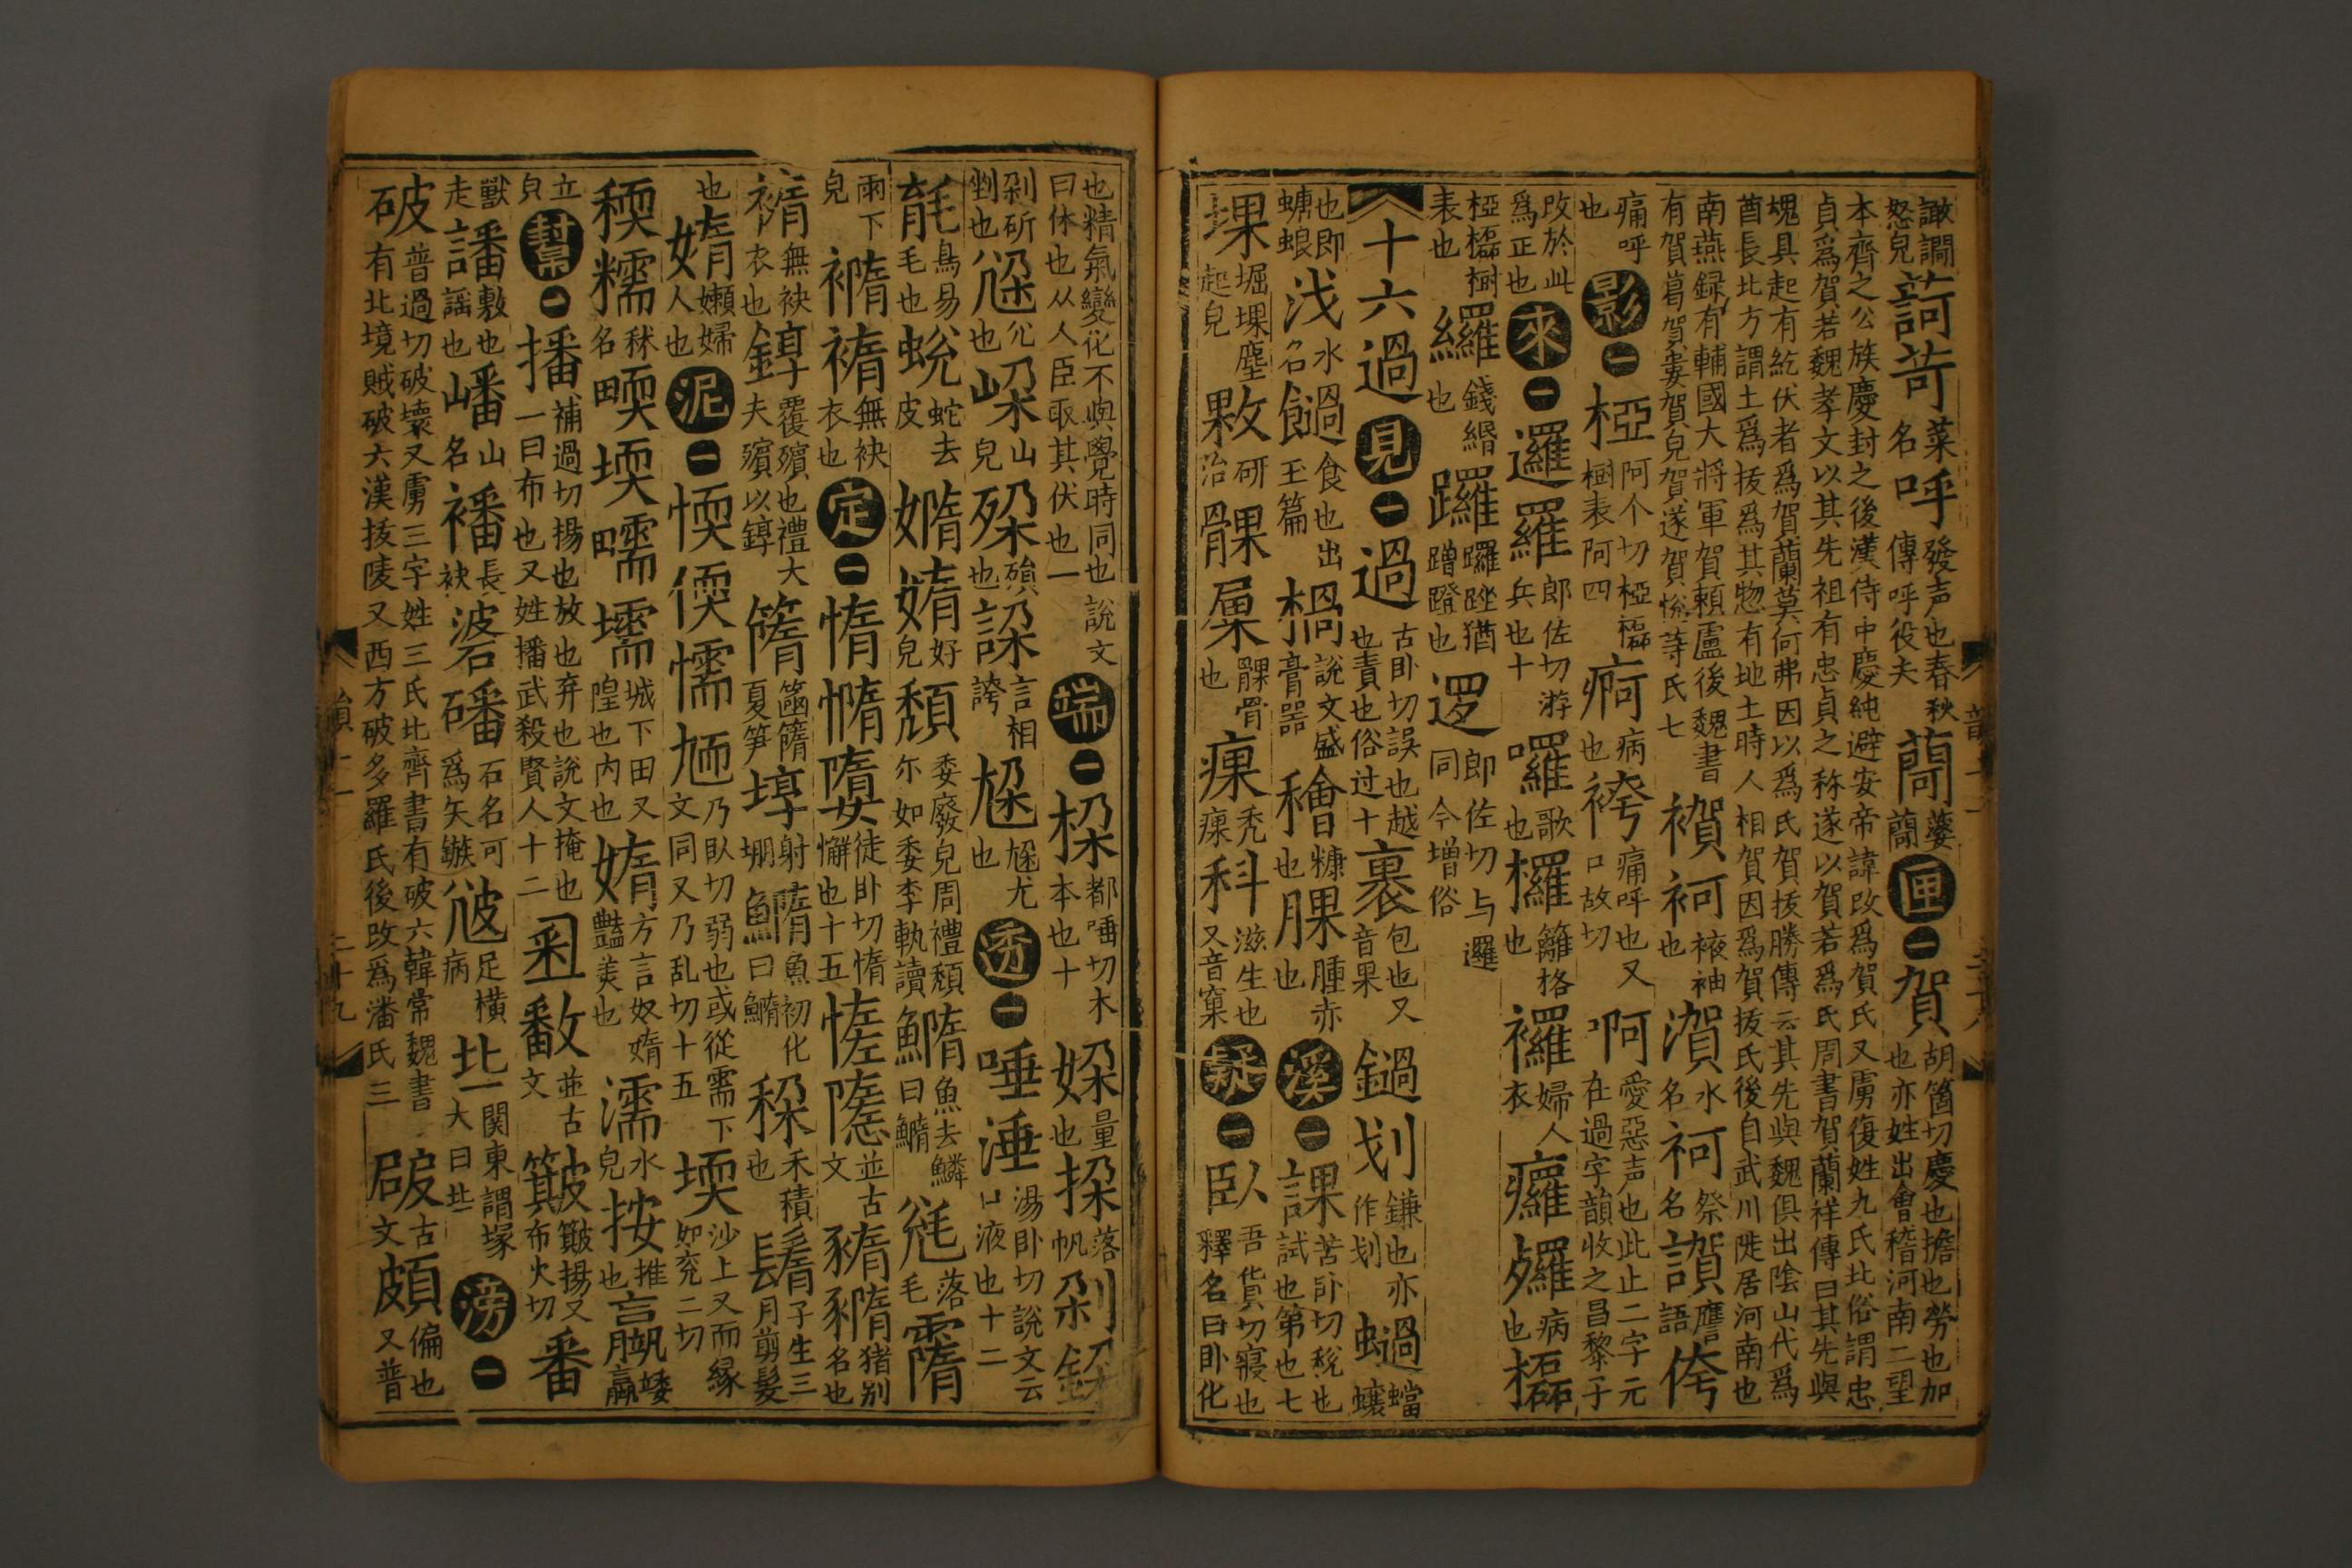 譀譋怒皃 訶苛菜名 呼發声也春秋傳呼役夫 藺蔢藺 匣一 賀胡箇切慶也擔也勞也加也亦姓出會稽河南二望
本齊之公族慶封之後漢侍中慶純避安帝諱改爲賀氏又虜復姓九氏北俗謂忠
貞爲賀若魏孝文以其先祖有忠貞之称遂以賀若爲氏周書賀蘭祥傳曰其先與
魏具起有紇伏者爲賀蘭莫何弗因以爲氏賀拔勝傳云其先與魏俱出陰山代爲
酋長北方謂土爲拔爲其惣有地土時人相賀因爲賀拔氏後自武川陡居河南也
南燕録有輔國大將軍賀頼盧後魏書
有賀葛賀婁賀兒賀遂賀悅等氏七 袔袔袖也 濱水名 袔祭名 讃譍語 侉
痛呼也 影一 椏阿个切椏橠樹表阿四 痾病也 袴痛呼也又口故切 啊愛惡声也此止二字元在過字韻收之昌黎子
改於此爲正也 來一 邏羅郎佐切游兵也十 囉歌也 欏籬格也 襬婦人衣 癳㒩病也 橠
椏橠樹表也 纙錢緡也 躧躧跢猶蹭蹬也 逻郎佐切与邏同今增俗
十六過 見一 過古卧切誤也越也責也俗过十 裹包也又音果 鐹划鎌也亦作划 蝸蟷蠰
也即螗蜋 浅水名 餶食也出玉篇 楇說文盛膏器 檜糠也 腂腫赤也 溪一 課苦卧切稅也試也第也七
堁堀堁塵起皃 敤研治 髁㞅髁骨也 瘰禿瘰 科滋生也又音窠 疑一 臥吾貨切寢也釋名曰卧化
也精氣變化不與覺時同也說文
曰休也从人臣取其伏也一 端一 桗都唾切木本也十 婇量也 挅落帆 刴鋖
剁斫剉也 㣞尣也 嵲山皃 䂳磒也 誃言相誇 尮尮尤也 透一 唾涶湯卧切說文云口液也十二
毻鳥易毛也 蛻蛇去皮 嫷媠好皃 頽委廢皃周禮頽尓如委李軌讀 鰖魚去鱗曰鰖 毤落毛 霿
雨下皃 褙褙無袂衣也 定一 惰憜嫷徒卧切惰懈也十五 愭隱並古文 豨豨猪别名也
褙無袂衣也 錞覆殯也禮大夫殯以錞 簫簫夏笋 埻射堋 鰖魚初化曰鰖 䅜禾積也 鬌子生三月剪髮
也 媠嬾婦人也 泥一 愞偄懦㐡乃臥切弱也或從需下文同又乃乱切十五 堧沙上又而縁如兖二切
稬糯秫名 㬉堧曘壖城下田又隍也内也 媠方言奴媠豔美也 濡水皃 按推也 嬴矮羸
立皃 幫一 播補過切揚也放也弃也說文掩也一曰布也又姓播武殺賢人十二 𠮷敽並古文 簸簸揚又布火切 番
獸走 譒敷也謡也 嶓山名 襎長袂 碆磻石名可爲矢鏃 㝿足橫病 㘳関東謂塚大曰㘳 滂一
破普過切破壞又虜三字姓三氏北齊書有破六韓常魏書
有北境賊破六漢拔陵又西方破多羅氏後改爲潘氏三 䪹古文 頗偏也又普